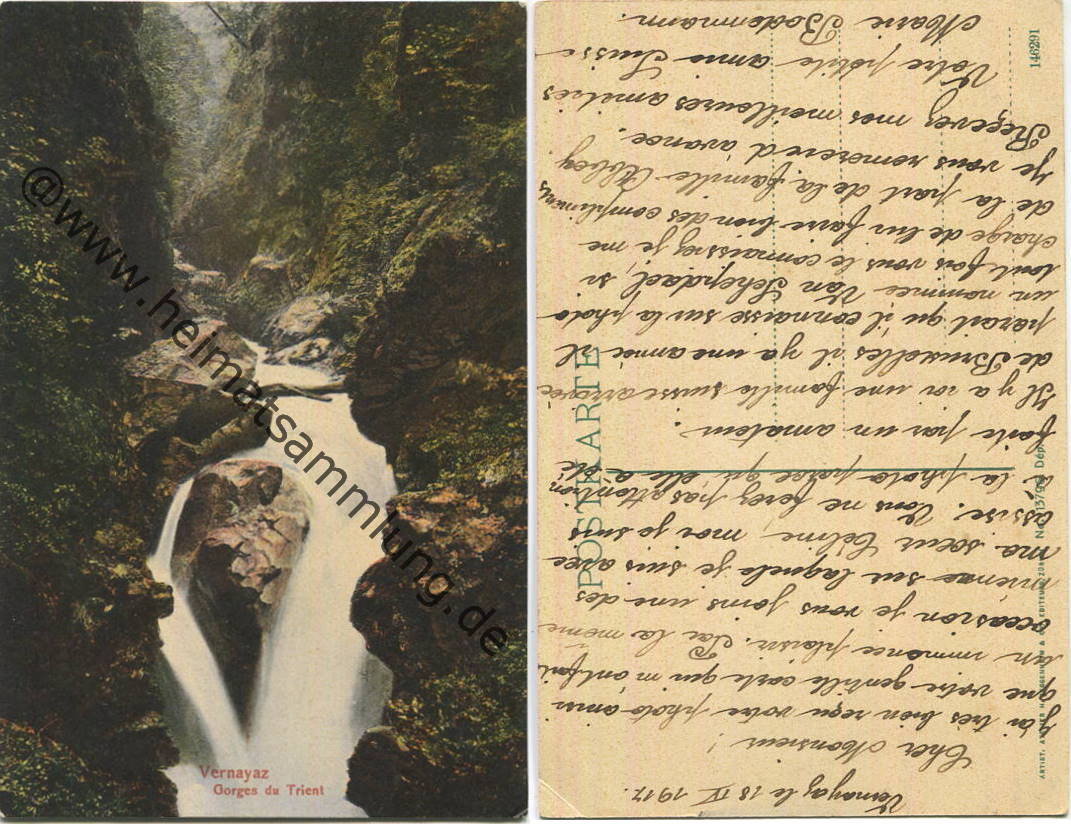 Vernayaz
Gorges du Trient
@www.heimatsammlung.de
POSTKARTE
146291
Vernayaz le 18 IV 1917.
Cher Monsieur!
J'ai très bien reçu votre photo ainsi
que votre gentille carte qui m'ont fait
un immence plaisir. Par la même
occasion je vous joins une des
mienne sur laquelle je suis avec
ma sœur Céline, moi je suis
assise. Vous ne ferez pas attention
à la photo parce qu'elle a été
faite par un amateur.
Il y a ici une famille suisse arrivée
de Bruxelles il y a une année il
parait qu'il connaisse sur la photo
un nommée Van Schepdael, si
tout fois vous le connaissez je me
charge de lui faire bien des compliments
de la part de la famille Abbey
je vous remercie d'avance.
Recevez mes meilleures amitiés
Votre petite amie Suisse
Marie Bodenmann.